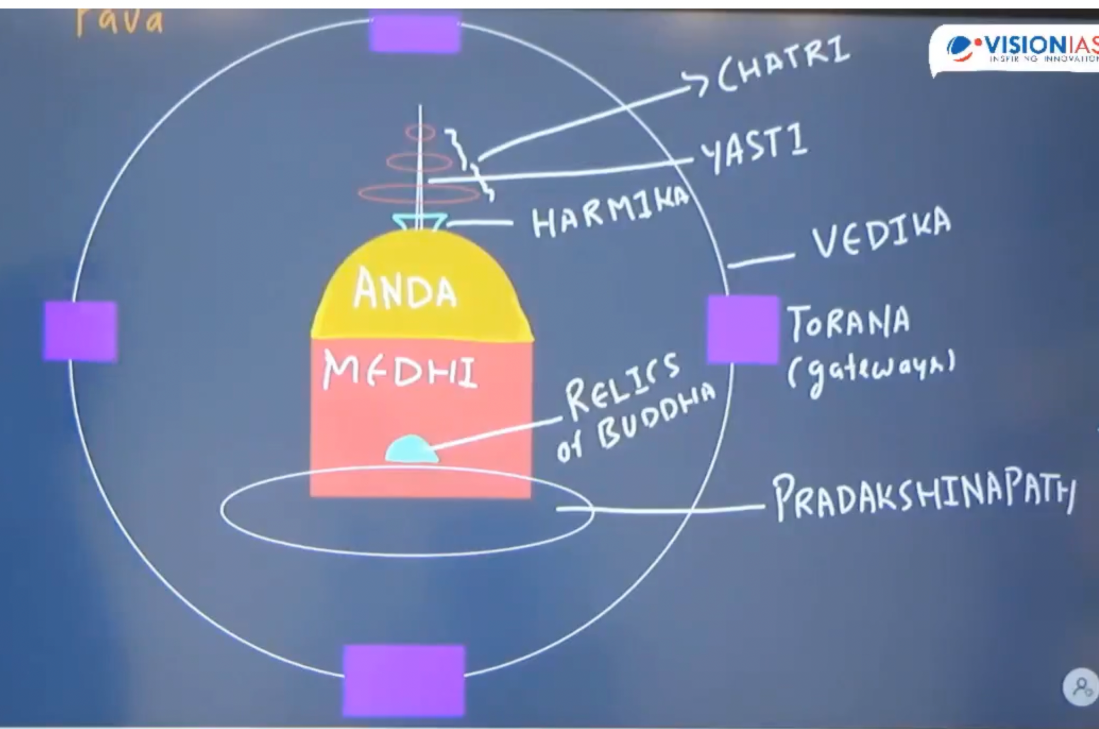 rava
VISIONIAS
INSPIRING INNOVATION
CHATRI
YASTI
HARMIKA
VEDIKA
ANDA
TORANA
(gateways)
MEDHI
RELICS
of BUDDHA
PRADAKSHINAPATH